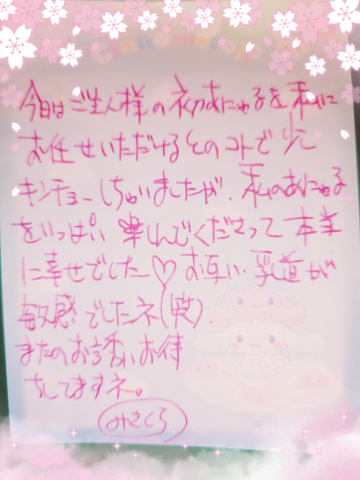 今日はご主人様の初あにゃるを私に
お任せいただけるとのコトで少し
キンチョーしちゃいましたが、私のあにゃる
をいっぱい楽しんでくださって本当
に幸せでした♡お互い乳首が
敏感でしたネ(笑)
またのお誘いお待
ちしてますネ。
みさくら